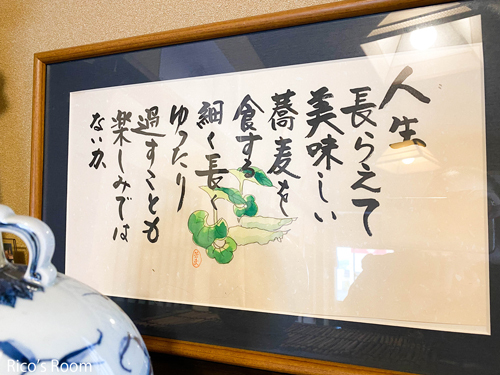 人生
長らえて
美味しい
蕎麦を
食する
細く長く
ゆったり
過すことも
楽しみでは
ないか
Rico's Room